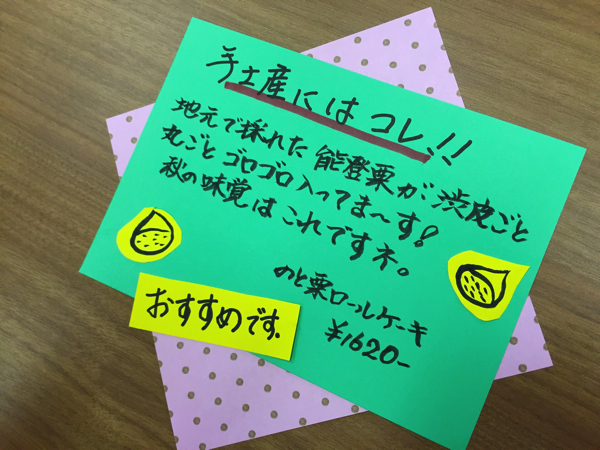 手土産にはコレ、!!
地元で採れた能登栗が渋皮ごと
丸ごとゴロゴロ入ってま〜す!
秋の味覚はこれですネ。
のと栗ロールケーキ
¥1620-
おすすめです.